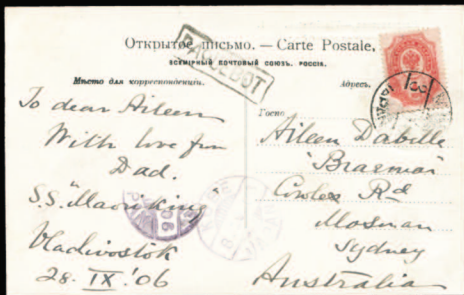 Открытое письмо. — Carte Postale.
ВСЕМІРНЫЙ ПОЧТОВЫЙ СОЮЗЪ. РОССІЯ.
PAQUEBOT
Мѣсто для корреспонденціи.
Адресъ.
To dear Aileen
With love from
Dad.
S.S. "Maori King"
Vladivostok
28. IX. '06
Aileen Dabelle
"Braemar"
Cowles Rd
Mosman
Sydney
Australia